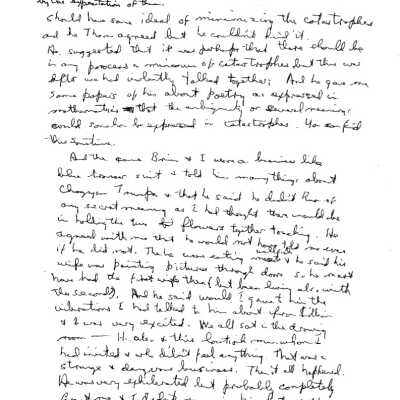 expectation of them.
should have some ideal of minimizing the catastrophes
and he Thom agreed but he couldn't find it.
As suggested that it was perhaps that there should be
in any process a minimum of catastrophes but this was
after we had violently talked together; And he gave me
some papers of his about poetry as expressed in
mathematics that the ambiguity or several meanings
could somehow be expressed in catastrophes. to find
this
And the same I wore a business like
blue trouser suit & told him many things about
Chogyam Trungpa & that he said he didn't know of
any secret meaning as I had thought there would be
in holding the two flowers together touching. He
agreed with me that he would not have told me even
if he did not. Then he were eating & he said his
wife was painting pictures through door so he must
have had the first wife then (but been living also with
the second). And he said would I grant him the
vibrations I had talked to him about from
& I was very excited. We all sat in the drawing
room — He also & this british man whom
had invited & who didn't feel anything That was a
strange & dangerous business. Then it all happened.
He was very exhilerated but probably completely